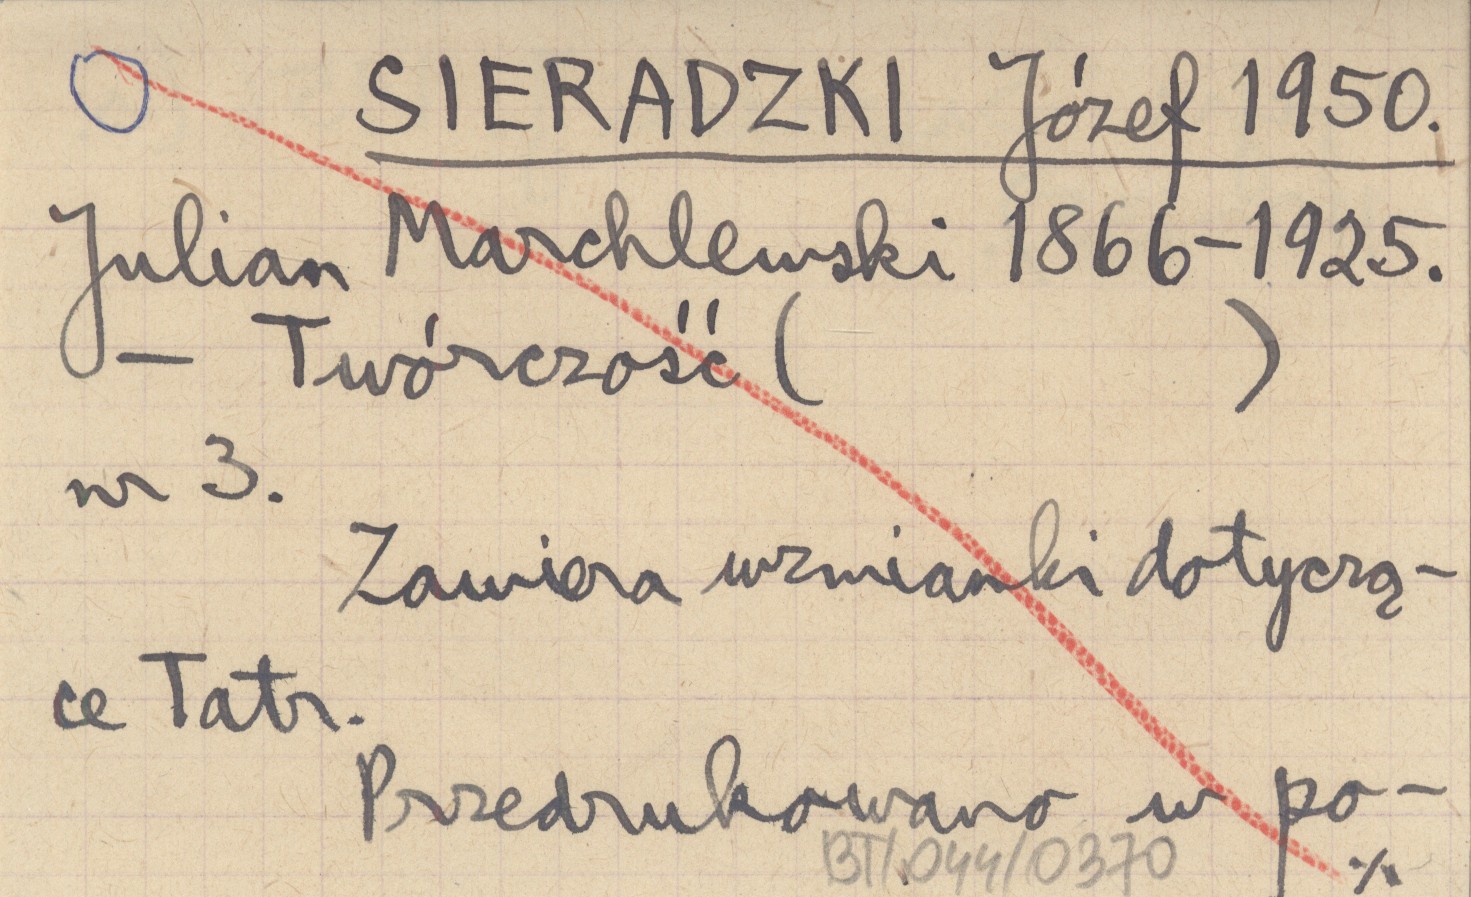 SIERADZKI Józef 1950.
Julian Marchlewski 1866-1925.
— Twórczość ( )
nr 3.
Zawiera wzmianki dotyczą-
ce Tatr.
Przedrukowano w po-
BT/044/0370
./.